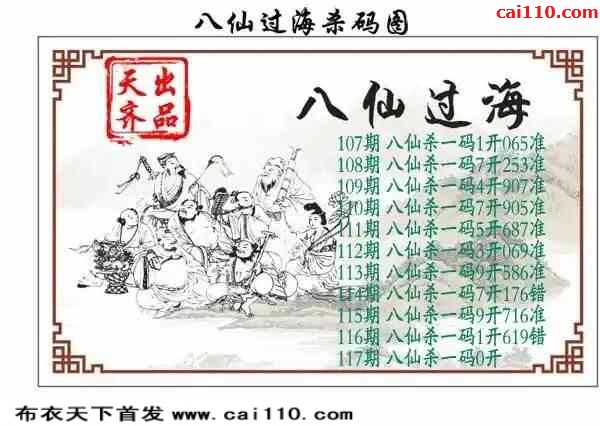 八仙过海杀码图
cai110.com
天齐
出品
八仙过海
107期 八仙杀一码1开065准
108期 八仙杀一码7开253准
109期 八仙杀一码4开907准
110期 八仙杀一码7开905准
111期 八仙杀一码5开687准
112期 八仙杀一码3开069准
113期 八仙杀一码9开586准
114期 八仙杀一码7开176错
115期 八仙杀一码9开716准
116期 八仙杀一码1开619错
117期 八仙杀一码0开
布衣天下首发 www.cai110.com